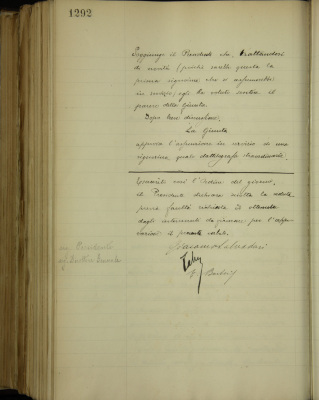 1292
Soggiunge il Presidente che, trattandosi
di novità (poiché sarebbe questa la
prima signorina che si assumerebbe
in servizio) egli ha voluto sentire il
parere della Giunta.
Dopo breve discussione,
La Giunta
approva l'assunzione in servizio di una
signorina quale dattilografa straordinaria.
Esauriti così l'ordine del giorno,
il Presidente dichiara sciolta la seduta,
previa facoltà richiesta ed ottenuta
dagli intervenuti di firmare per l'appro
vazione il presente verbale.